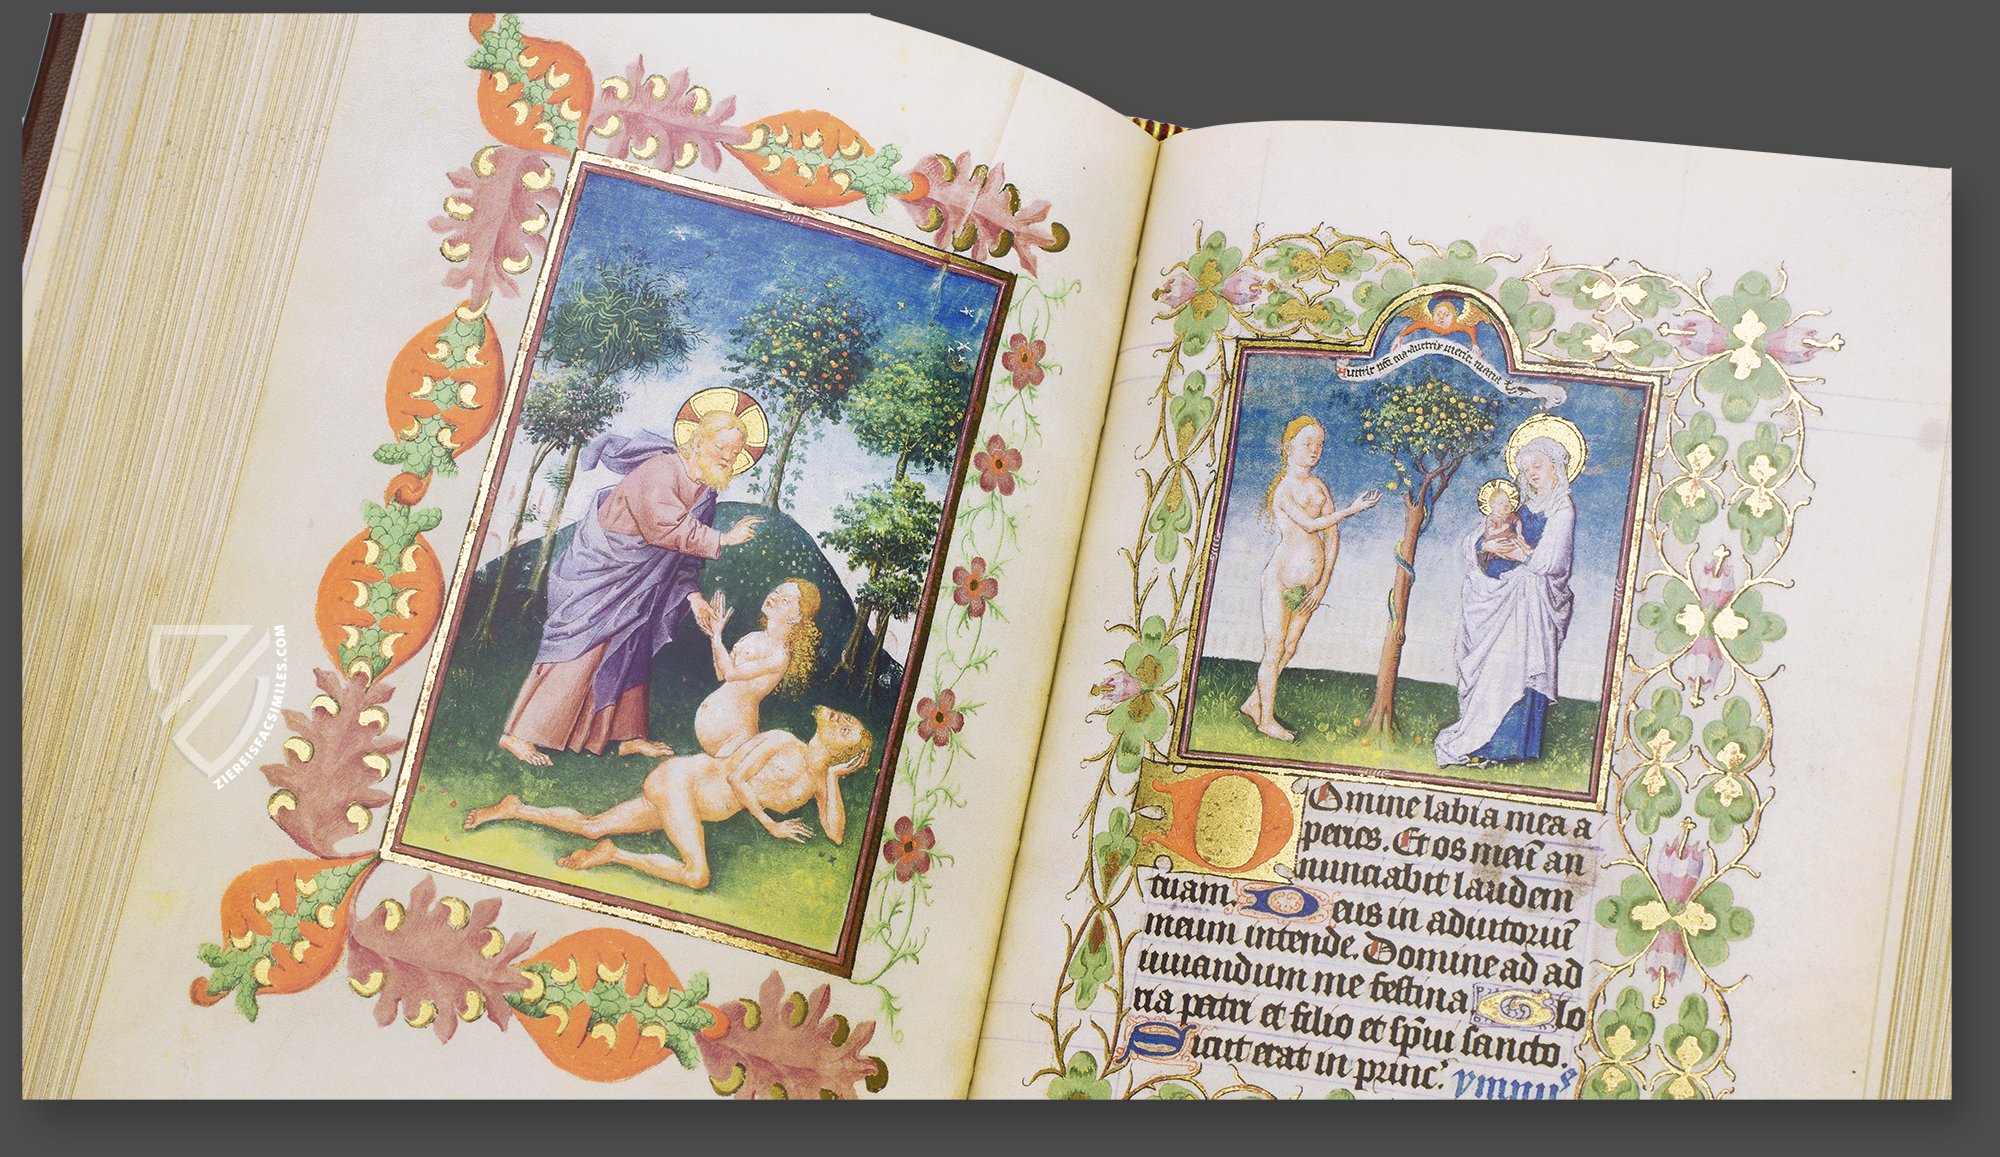 ZIEREISFACSIMILES.COM
auctrix meriti
Domine labia mea a
peries. Et os meū an
nunciabit laudem
tuam. Deus in adiutoriū
meum intende. Domine ad ad
iuuandum me festina. Glo
ria patri et filio et spūi sancto.
Sicut erat in princ. ymnus